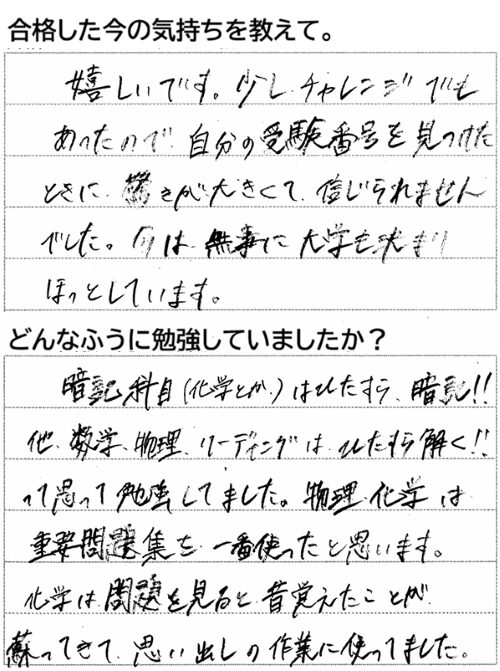 合格した今の気持ちを教えて。
嬉しいです。少しチャレンジでも
あったので、自分の受験番号を見つけた
ときに、驚きが大きくて、信じられません
でした。今は、無事に大学も決まり
ほっとしています。
どんなふうに勉強していましたか？
暗記科目(化学とか)はひたすら、暗記!!
他、数学、物理、リーディングは、ひたすら解く!!
って思って勉強してました。物理、化学は
重要問題集を、一番使ったと思います。
化学は問題を見ると、昔覚えたことが
蘇ってきて、思い出しの作業に使ってました。